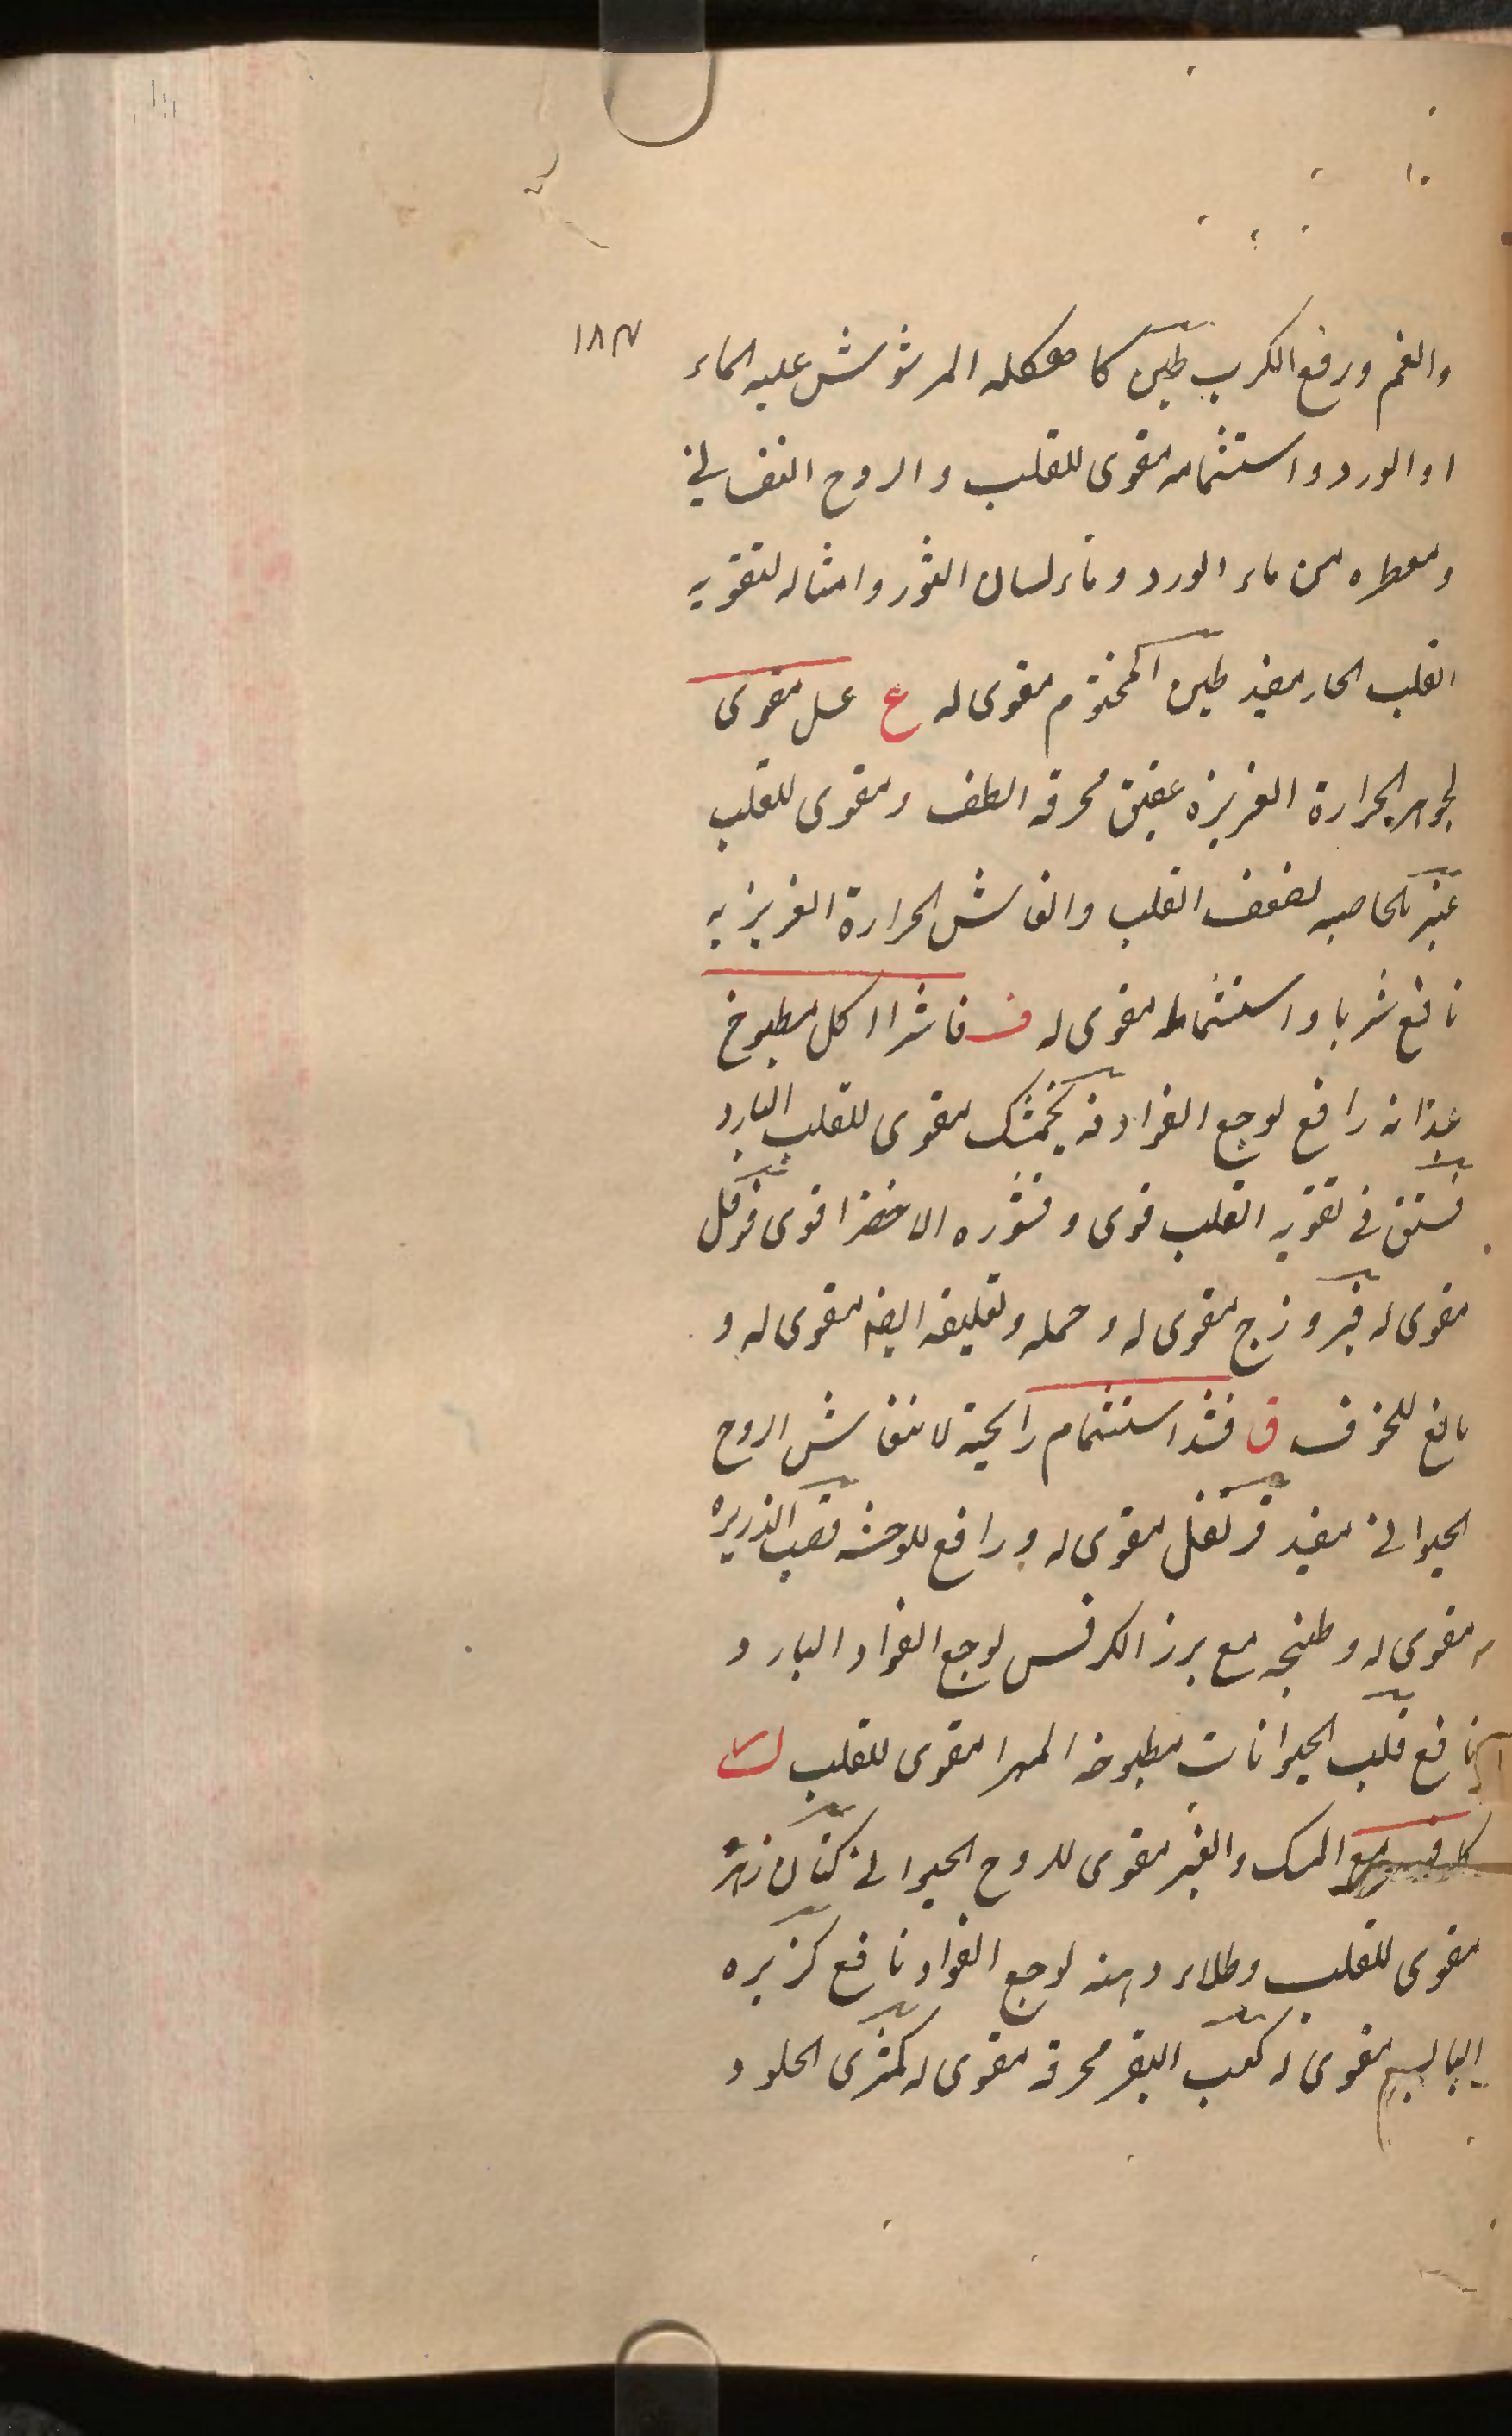 ۱۸۳
والغم ورفع الكرب طين كاهكله المرشوش عليه الماء
او الورد واستشمامه مقوى للقلب والروح النفسانی
ومعطره من ماء الورد وماء لسان الثور وامثاله لتقويه
القلب الحار مفيد طين المختوم مقوى له ع عسل مقوى
لجوهر الحرارة الغريزه عقيق محرقه الطف ومقوى للقلب
عنبر بالخاصيه لضعف القلب وانعاش الحرارة الغريزيه
نافع شربا واستشماما مقوى له ف فاشرا اكل مطبوخ
غذائه رافع لوجع الفواد فرنجمشک مقوى للقلب البارد
فستق فی تقويه القلب قوى وقشوره الاخضر اقوى فوفل
مقوى له فيروزج مقوى له وحمله وتعليقه ايضا مقوى له و
مانع للخوف ق قثد استشمام رايحته لانتعاش الروح
الحيوانی مفيد قرنفل مقوى له ورافع للوحشه قصب الذريره
مقوى له وطبخه مع برز الكرفس لوجع الفواد البارد
نافع قلب الحيوانات مطبوخه المهرا مقوى للقلب ک
كافور مع المسک والعنبر مقوى للروح الحيوانی كتان زهره
مقوى للقلب وطلاء دهنه لوجع الفواد نافع كزبره
اليابسه مقوى له كعب البقر محرقه مقوى له كمثرى الحلو و